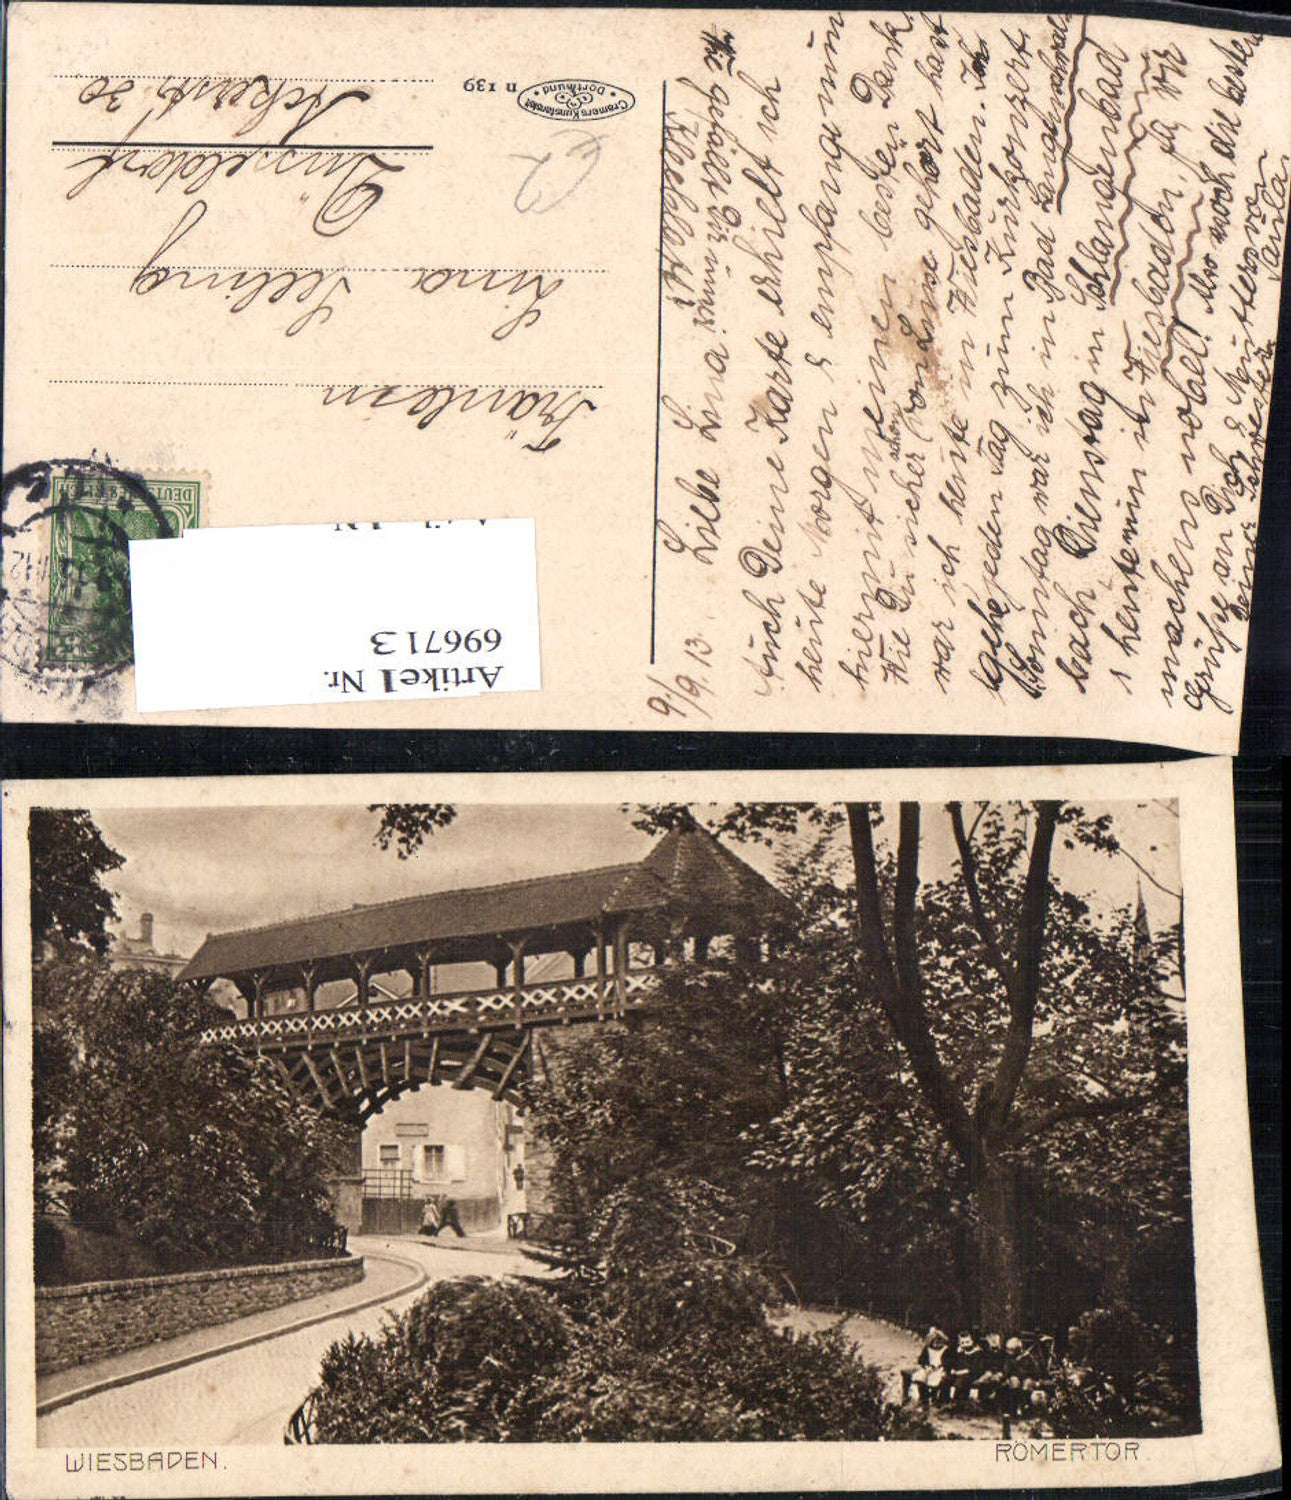 Wie gefällt Dir unser
Kleeblatt?
9./9. 13. Liebe Lina!
Auch Deine Karte erhielt ich
heute Morgen & empfang nun
hiermit meinen besten Dank.
Wie Du sicher schon von Luise gehört hast
war ich heute in Wiesbaden. Ich
gehe jeden Tag zum Kurkonzert.
Sonntag war ich in Bad Langenschwal-
bach, Dienstag in Schlangenbad
& heute nun in Wiesbaden, ja wir
machens nobel! Also noch die besten
Grüße an Dich & Mutter von
Deiner Schwester Paula
Fräulein
Lina Seeling
Düsseldorf
Ackerstr. 30
Cramers Kunstanstalt
Dortmund
n 139
€2
DEUTSCHES REICH
Artikel Nr.
696713
WIESBADEN.
RÖMERTOR.